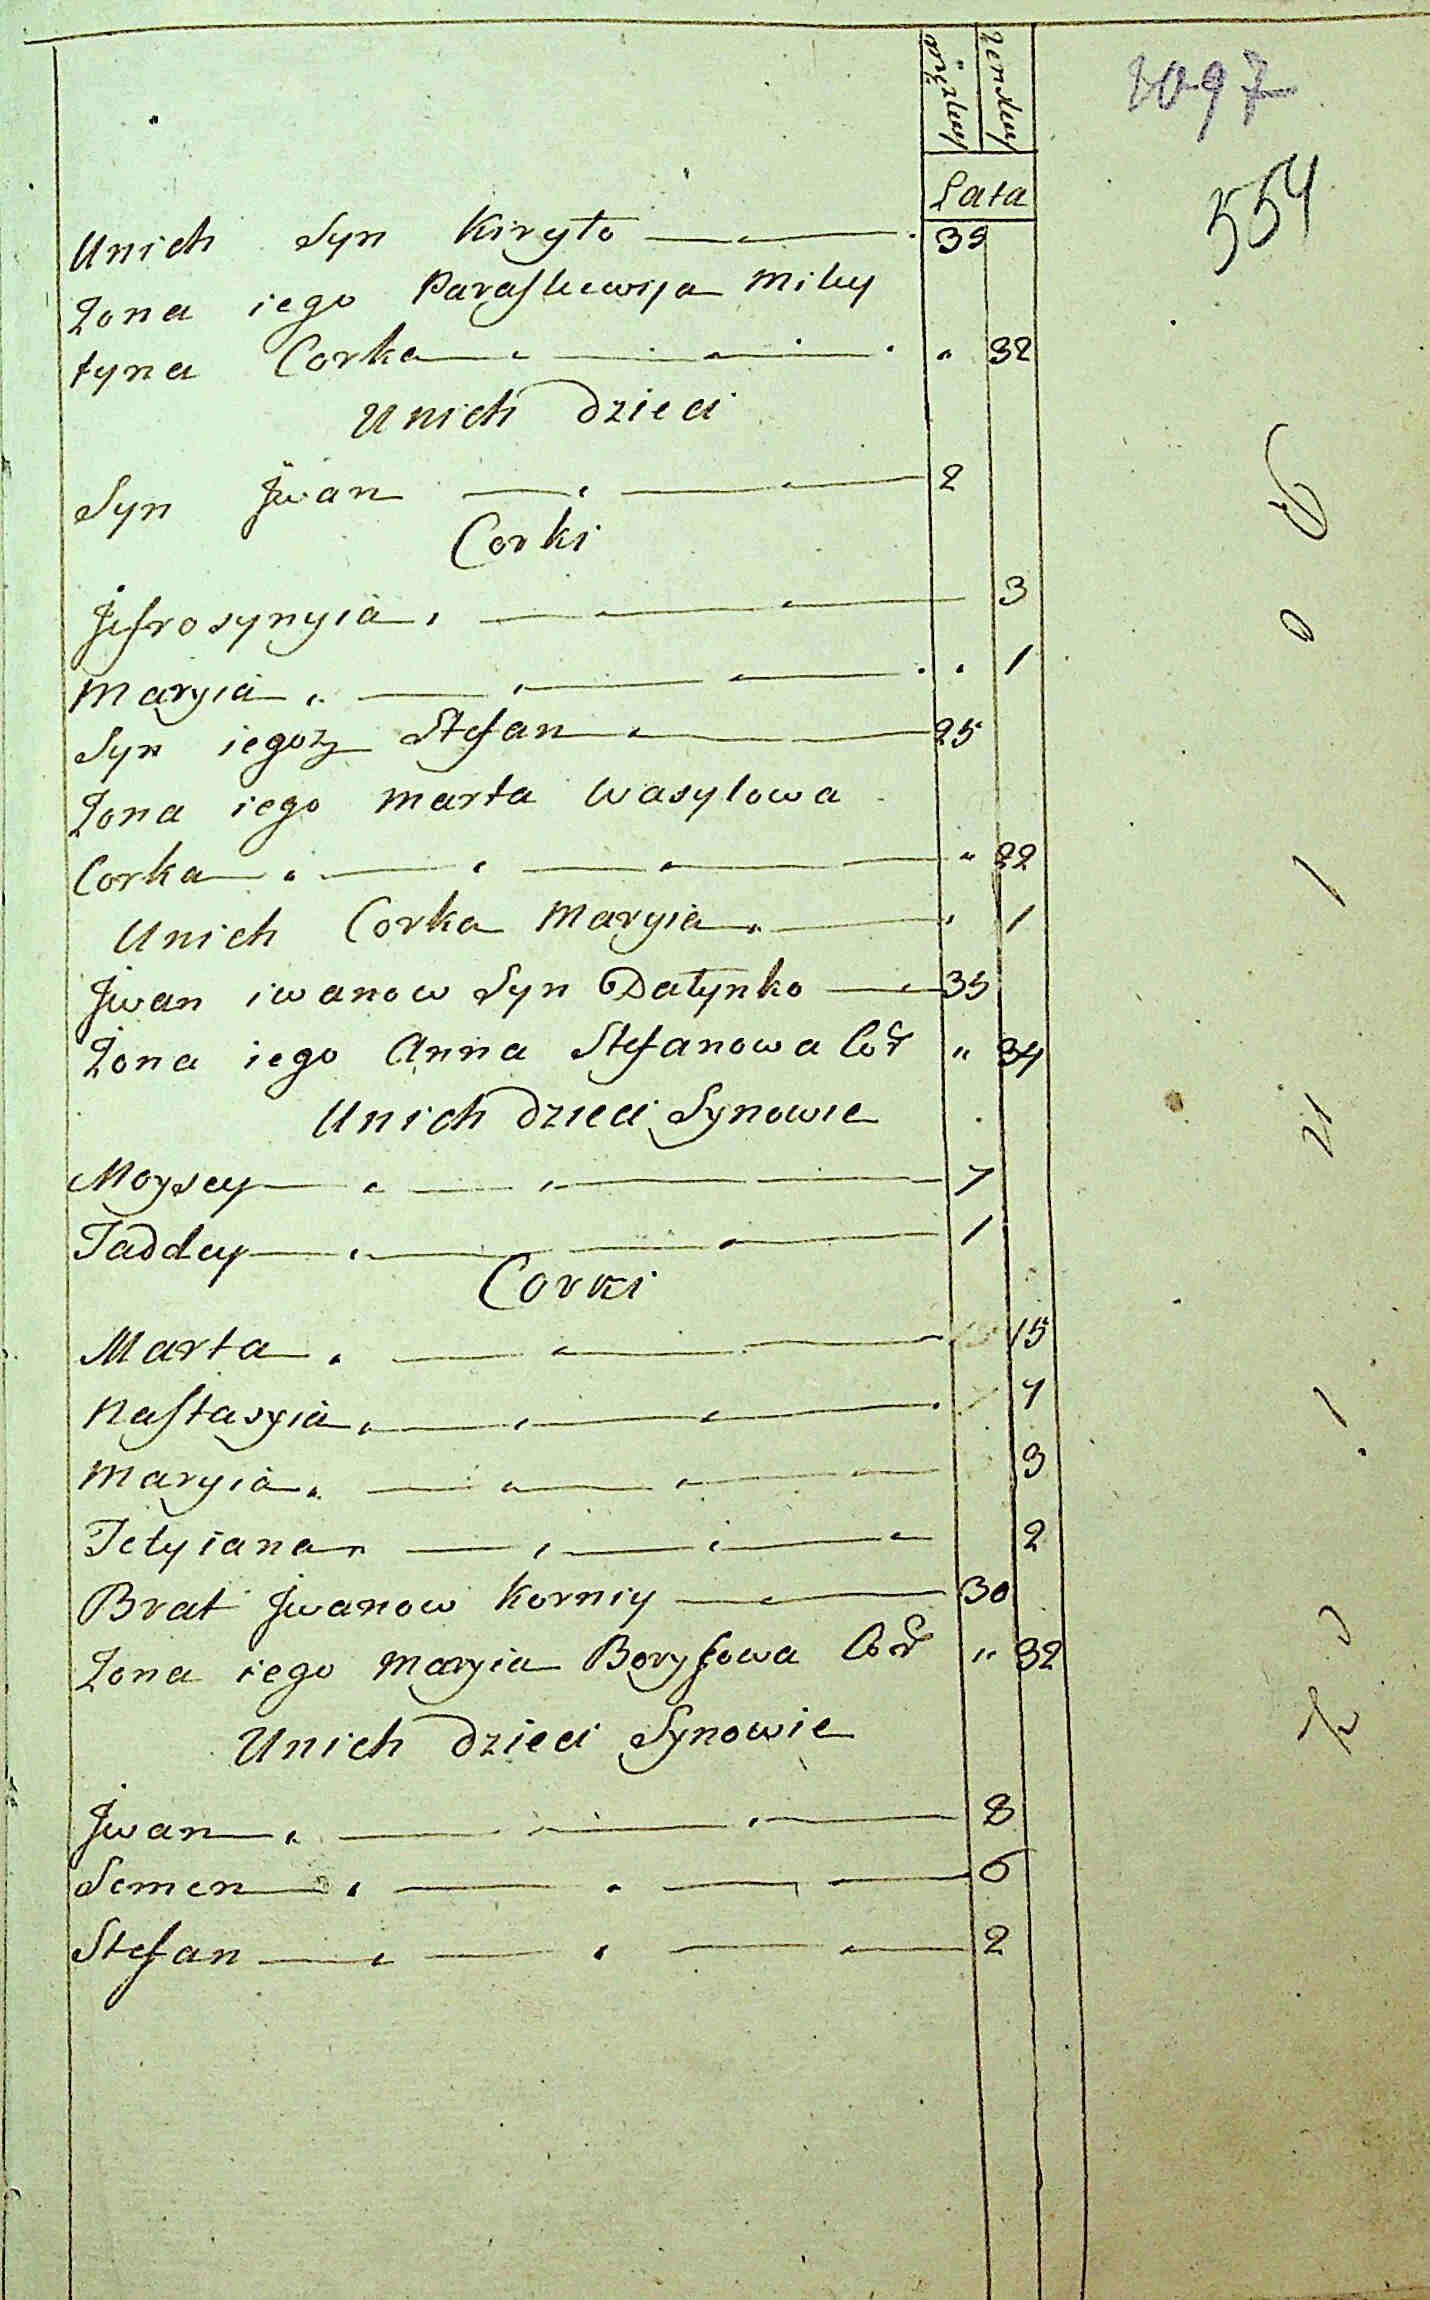 męzkey żenskey
2097
Lata
554
Unich Syn Kiryło 35
Żona iego Paraskewija Miky
tyna Corka " 32
Unich dzieci
Syn Jwan 2
Corki
Jefrosynyia 3
Maryia 1
Syn iegoż Stefan 25
Żona iego Marta Wasylowa
Corka " 22
Unich Corka Maryia 1
Jwan iwanow Syn Datynko 35
Żona iego Anna Stefanowa Cór " 34
Unich dzieci Synowie
Moysey 7
Taddey 1
Corki
Marta 15
Nastasyia 7
Maryia 3
Tetyiana 2
Brat Jwanow Korniy 30
Żona iego Maryia Borysowa Cór " 32
Unich dzieci Synowie
Jwan 8
Semen 6
Stefan 2